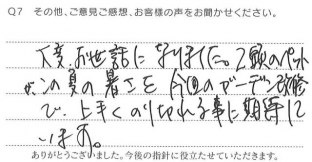 Q7 その他、ご意見ご感想、お客様の声をお聞かせください。
大変お世話になりました。2頭のペット
が、この夏の暑さを今回のガーデン改修
で、上手くのりきれる事に期待して
います。
ありがとうございました。今後の指針に役立たせていただきます。